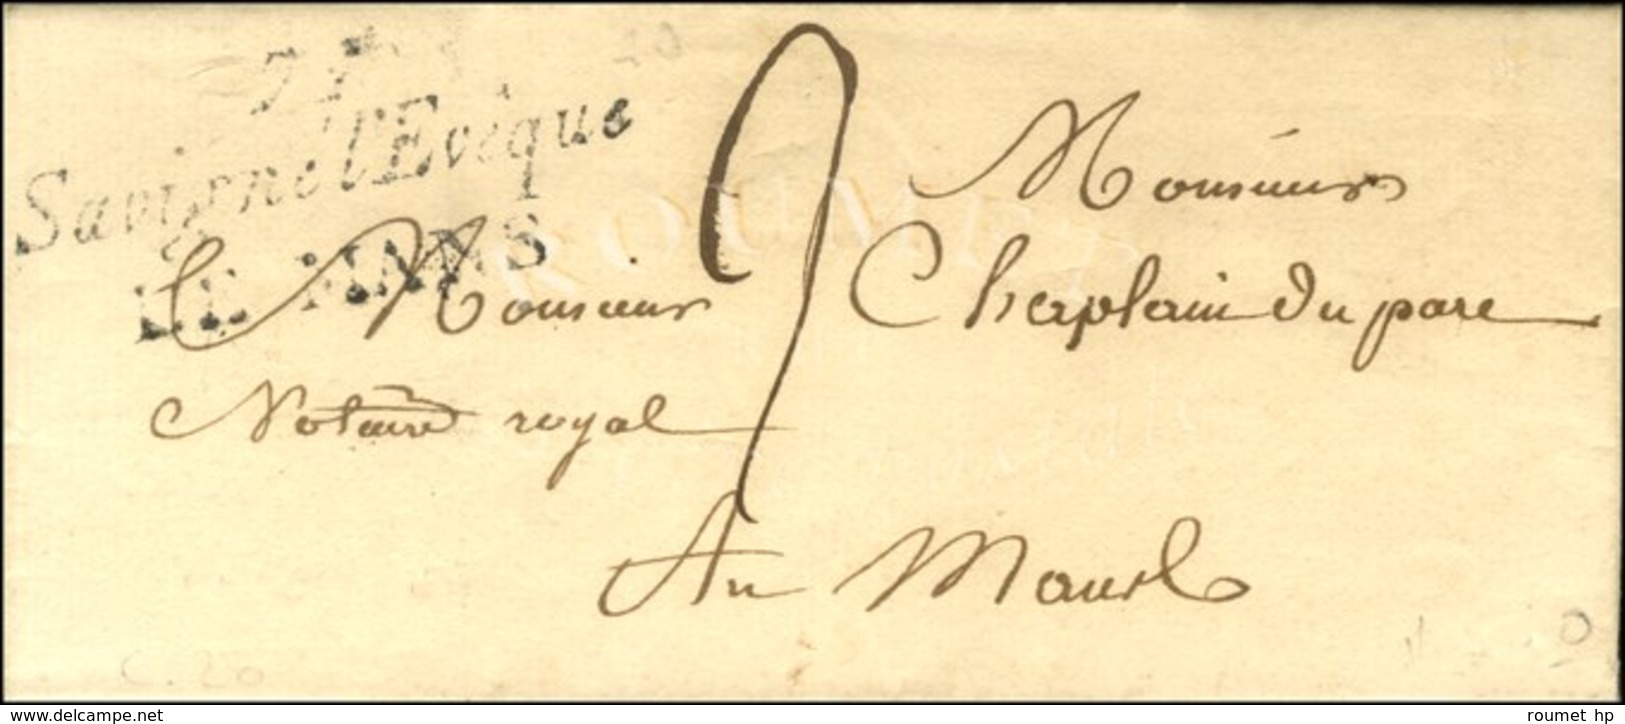 71
Savigné l'Evêque
LE MANS
2
Monsieur
Monsieur Chaplain du parc
Notaire royal
Au Mans
C. 20
ROUMET
www.delcampe.net
roumet hp